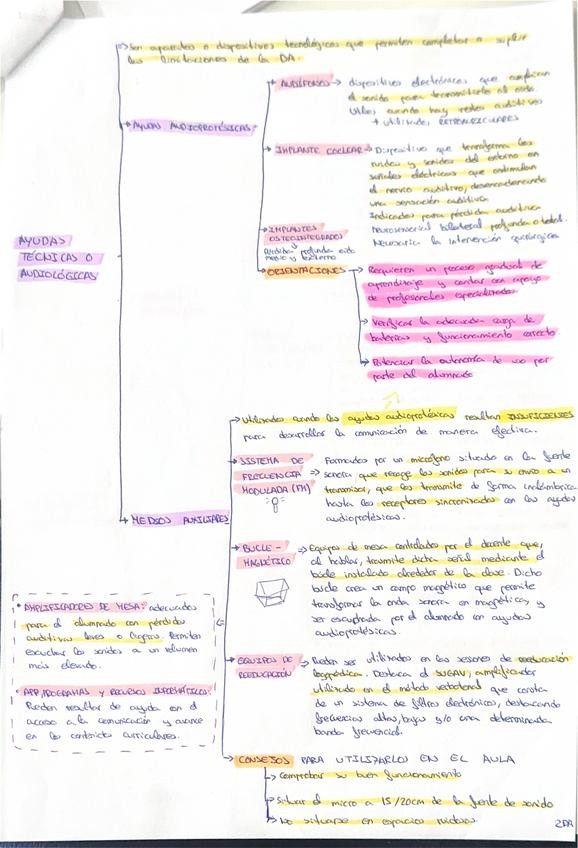 Son aparatos o dispositivos tecnológicos que permiten completar o suplir
las limitaciones de la DA.
AYUDAS
TÉCNICAS O
AUDIOLÓGICAS
AYUDAS AUDIOPROTÉSICAS
AUDÍFONOS → dispositivos electrónicos que amplifican
el sonido para transmitirlo al oído.
Útiles cuando hay restos auditivos
+ utilizados RETROAURICULARES
IMPLANTE COCLEAR → Dispositivo que transforma los
ruidos y sonidos del entorno en
señales eléctricas que estimulan
el nervio auditivo, desencadenando
una sensación auditiva
Indicados para pérdida auditiva
neurosensorial bilateral profunda o total.
Necesaria la intervención quirúrgica
IMPLANTES
OSTEOINTEGRADOS
Pérdida profunda oído
medio y externo
ORIENTACIONES
Requieren un proceso gradual de
aprendizaje y contar con apoyo
de profesionales especializados
Verificar la adecuada carga de
baterías y funcionamiento correcto.
Potenciar la autonomía de uso por
parte del alumnado
MEDIOS AUXILIARES
Utilizados cuando las ayudas audioprotésicas resultan INSUFICIENTES
para desarrollar la comunicación de manera efectiva.
SISTEMA DE
FRECUENCIA
MODULADA (FM)
Formados por un micrófono situado en la fuente
sonora que recoge los sonidos para su envío a un
transmisor, que los transmite de forma inalámbrica
hasta los receptores sincronizados con las ayudas
audioprotésicas.
BUCLE-
MAGNÉTICO
Equipos de mesa controlados por el docente que,
al hablar, trasmite dicha señal mediante el
bucle instalado alrededor de la clase. Dicho
bucle crea un campo magnético que permite
transformar la onda sonora en magnética, y
ser escuchada por el alumnado con ayudas
audioprotésicas.
EQUIPOS DE
REEDUCACIÓN
Pueden ser utilizados en las sesiones de reeducación
logopédica. Destaca el SUVAG, amplificador
utilizado en el método verbotonal que consta
de un sistema de filtros electrónicos, destacando
frecuencias altas, bajas y/o una determinada
banda frecuencial.
• AMPLIFICADORES DE MESA: adecuados
para el alumnado con pérdidas
auditivas leves o ligeras. Permiten
escuchar los sonidos a un volumen
más elevado.
• APP, PROGRAMAS Y RECURSOS INFORMÁTICOS:
Pueden resultar de ayuda en el
acceso a la comunicación y avance
en los contenidos curriculares.
CONSEJOS PARA UTILIZARLOS EN EL AULA
Comprobar su buen funcionamiento
Situar el micro a 15/20cm de la fuente de sonido
No situarse en espacios ruidosos